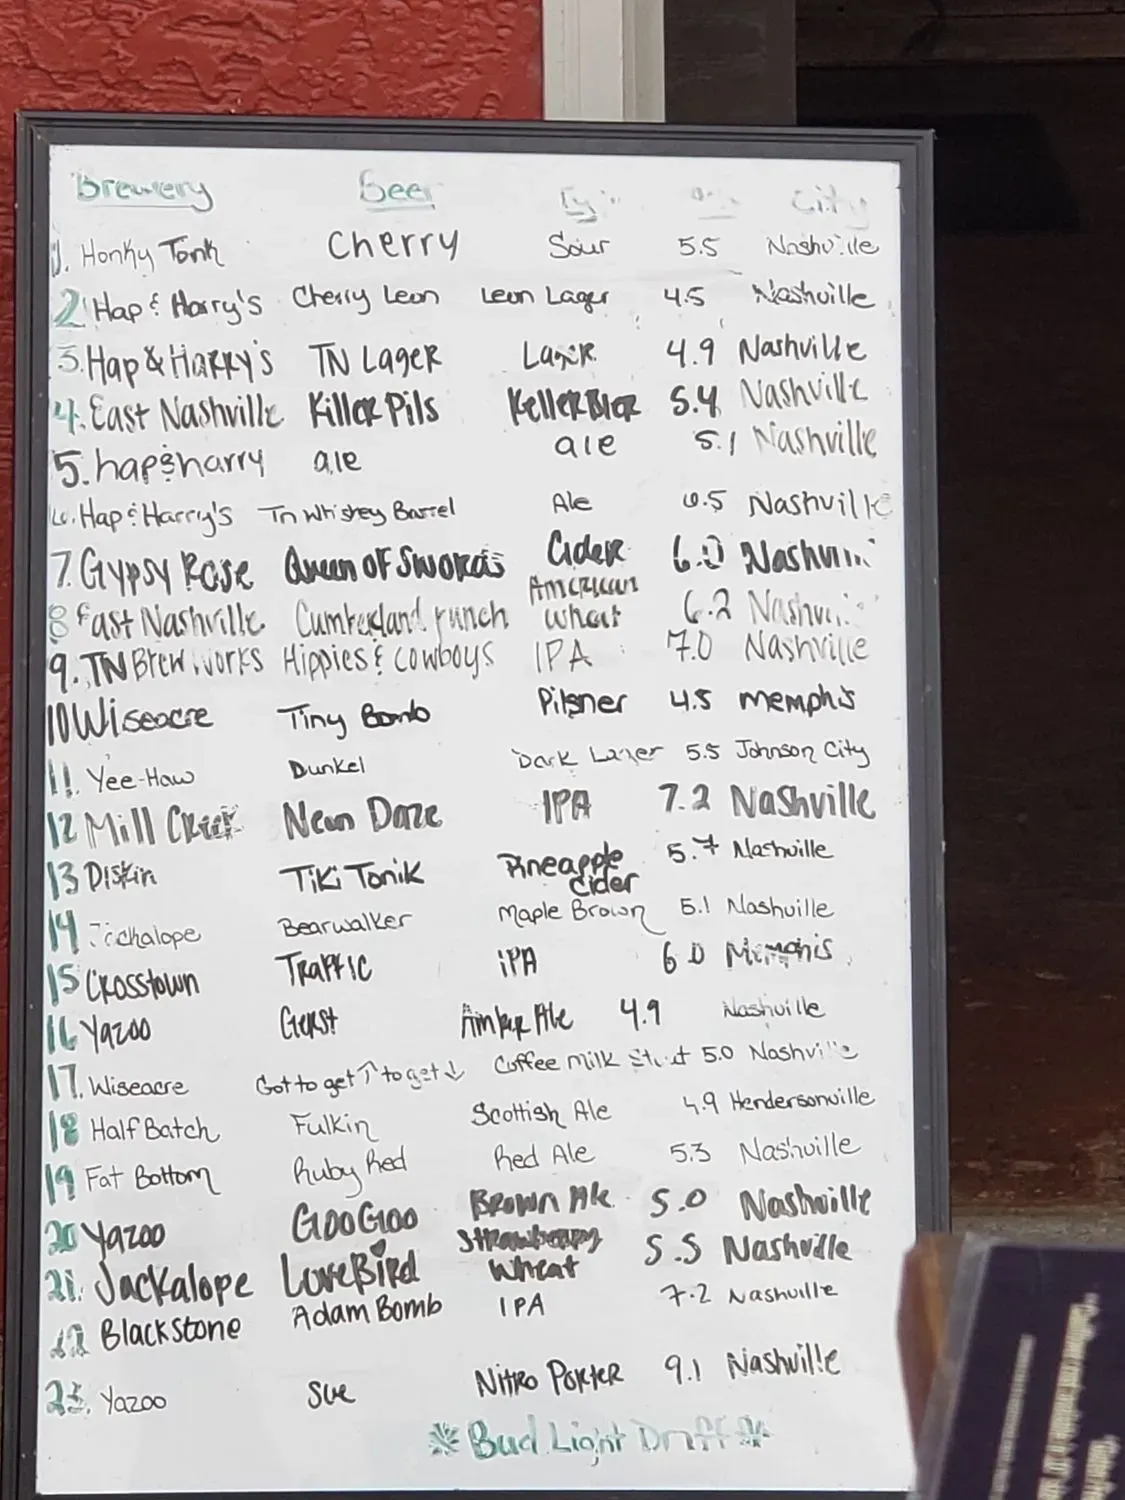 Brewery Beer Ty City
1. Honky Tonk Cherry Sour 5.5 Nashville
2 Hap & Harry's Cherry Leon Leon Lager 4.5 Nashville
3. Hap & Harry's TN Lager Lager 4.9 Nashville
4. East Nashville Killer Pils KellerBier 5.4 Nashville
5. hap & harry ale ale 5.1 Nashville
6. Hap & Harry's Tn Whiskey Barrel Ale 6.5 Nashville
7. Gypsy Rose Queen of Swords Cider 6.0 Nashvill
8 East Nashville Cumberland Punch American Wheat 6.2 Nashvi
9. TN Brew Works Hippies & Cowboys IPA 7.0 Nashville
10 Wiseacre Tiny Bomb Pilsner 4.5 Memphis
11. Yee-Haw Dunkel Dark Lager 5.5 Johnson City
12 Mill Creek Neon Daze IPA 7.2 Nashville
13 Diskin Tiki Tonik Pineapple Cider 5.7 Nashville
14 Jackalope Bearwalker Maple Brown 5.1 Nashville
15 Crosstown Traffic iPA 6.0 Memphis
16 Yazoo Gerst Amber Ale 4.9 Nashville
17. Wiseacre Got to get ↑ to get ↓ Coffee Milk Stout 5.0 Nashville
18 Half Batch Fulkin Scottish Ale 4.9 Hendersonville
19 Fat Bottom Ruby Red Red Ale 5.3 Nashville
20 Yazoo GooGoo Brown Ale 5.0 Nashville
21. Jackalope LoveBird Strawberry Wheat 5.5 Nashville
22 Blackstone Adam Bomb IPA 7.2 Nashville
23. Yazoo Sue Nitro Porter 9.1 Nashville
* Bud Light Draft *